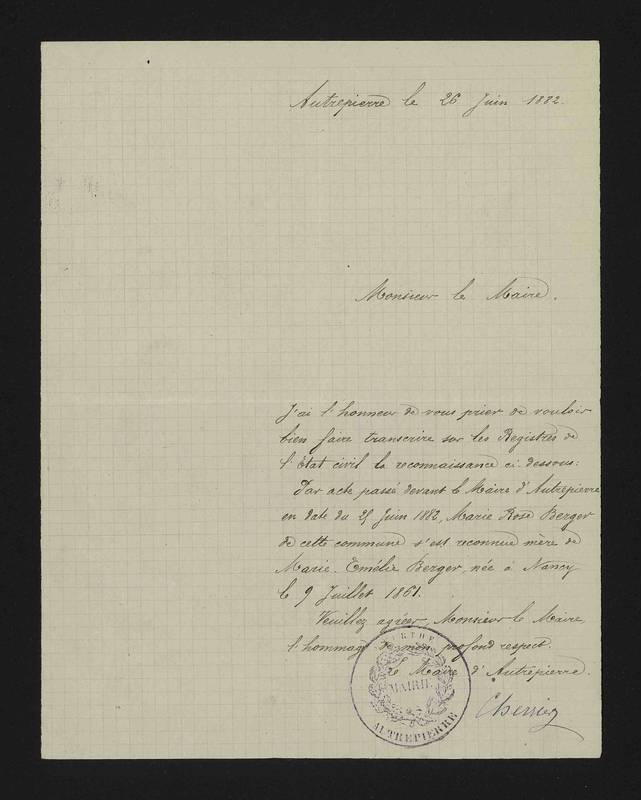 Autrepierre le 26 Juin 1882.
Monsieur le Maire.
J'ai l'honneur de vous prier de vouloir
bien faire transcrire sur les Registres de
l'Etat civil la reconnaissance ci dessous:
Par acte passé devant le Maire d'Autrepierre
en date du 25 Juin 1882, Marie Rose Berger
de cette commune s'est reconnue mère de
Marie-Emélie Berger, née à Nancy
le 9 Juillet 1861.
Veuillez agréer, Monsieur le Maire,
l'hommage de mon profond respect.
Le Maire d'Autrepierre.
MAIRIE
AUTREPIERRE